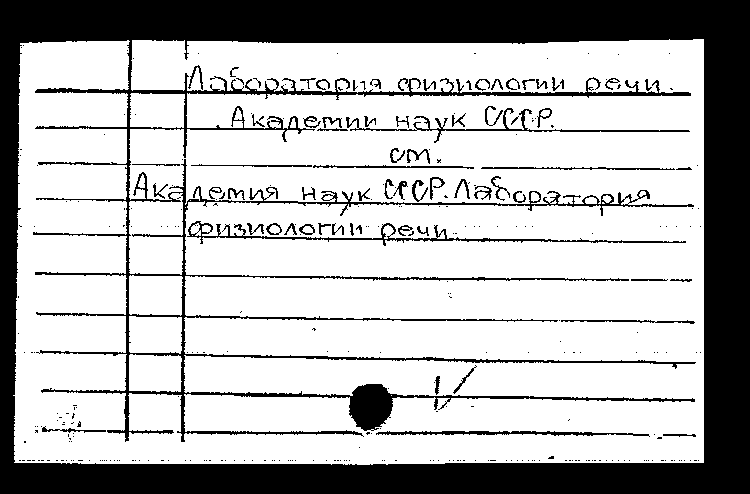 Лаборатория физиологии речи.
Академии наук СССР.
см.
Академия наук СССР. Лаборатория
физиологии речи.